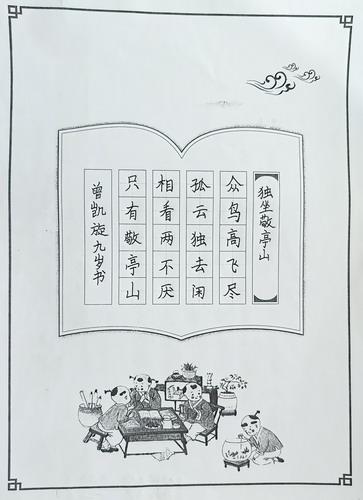 独坐敬亭山
众鸟高飞尽
孤云独去闲
相看两不厌
只有敬亭山
曾凯旋九岁书